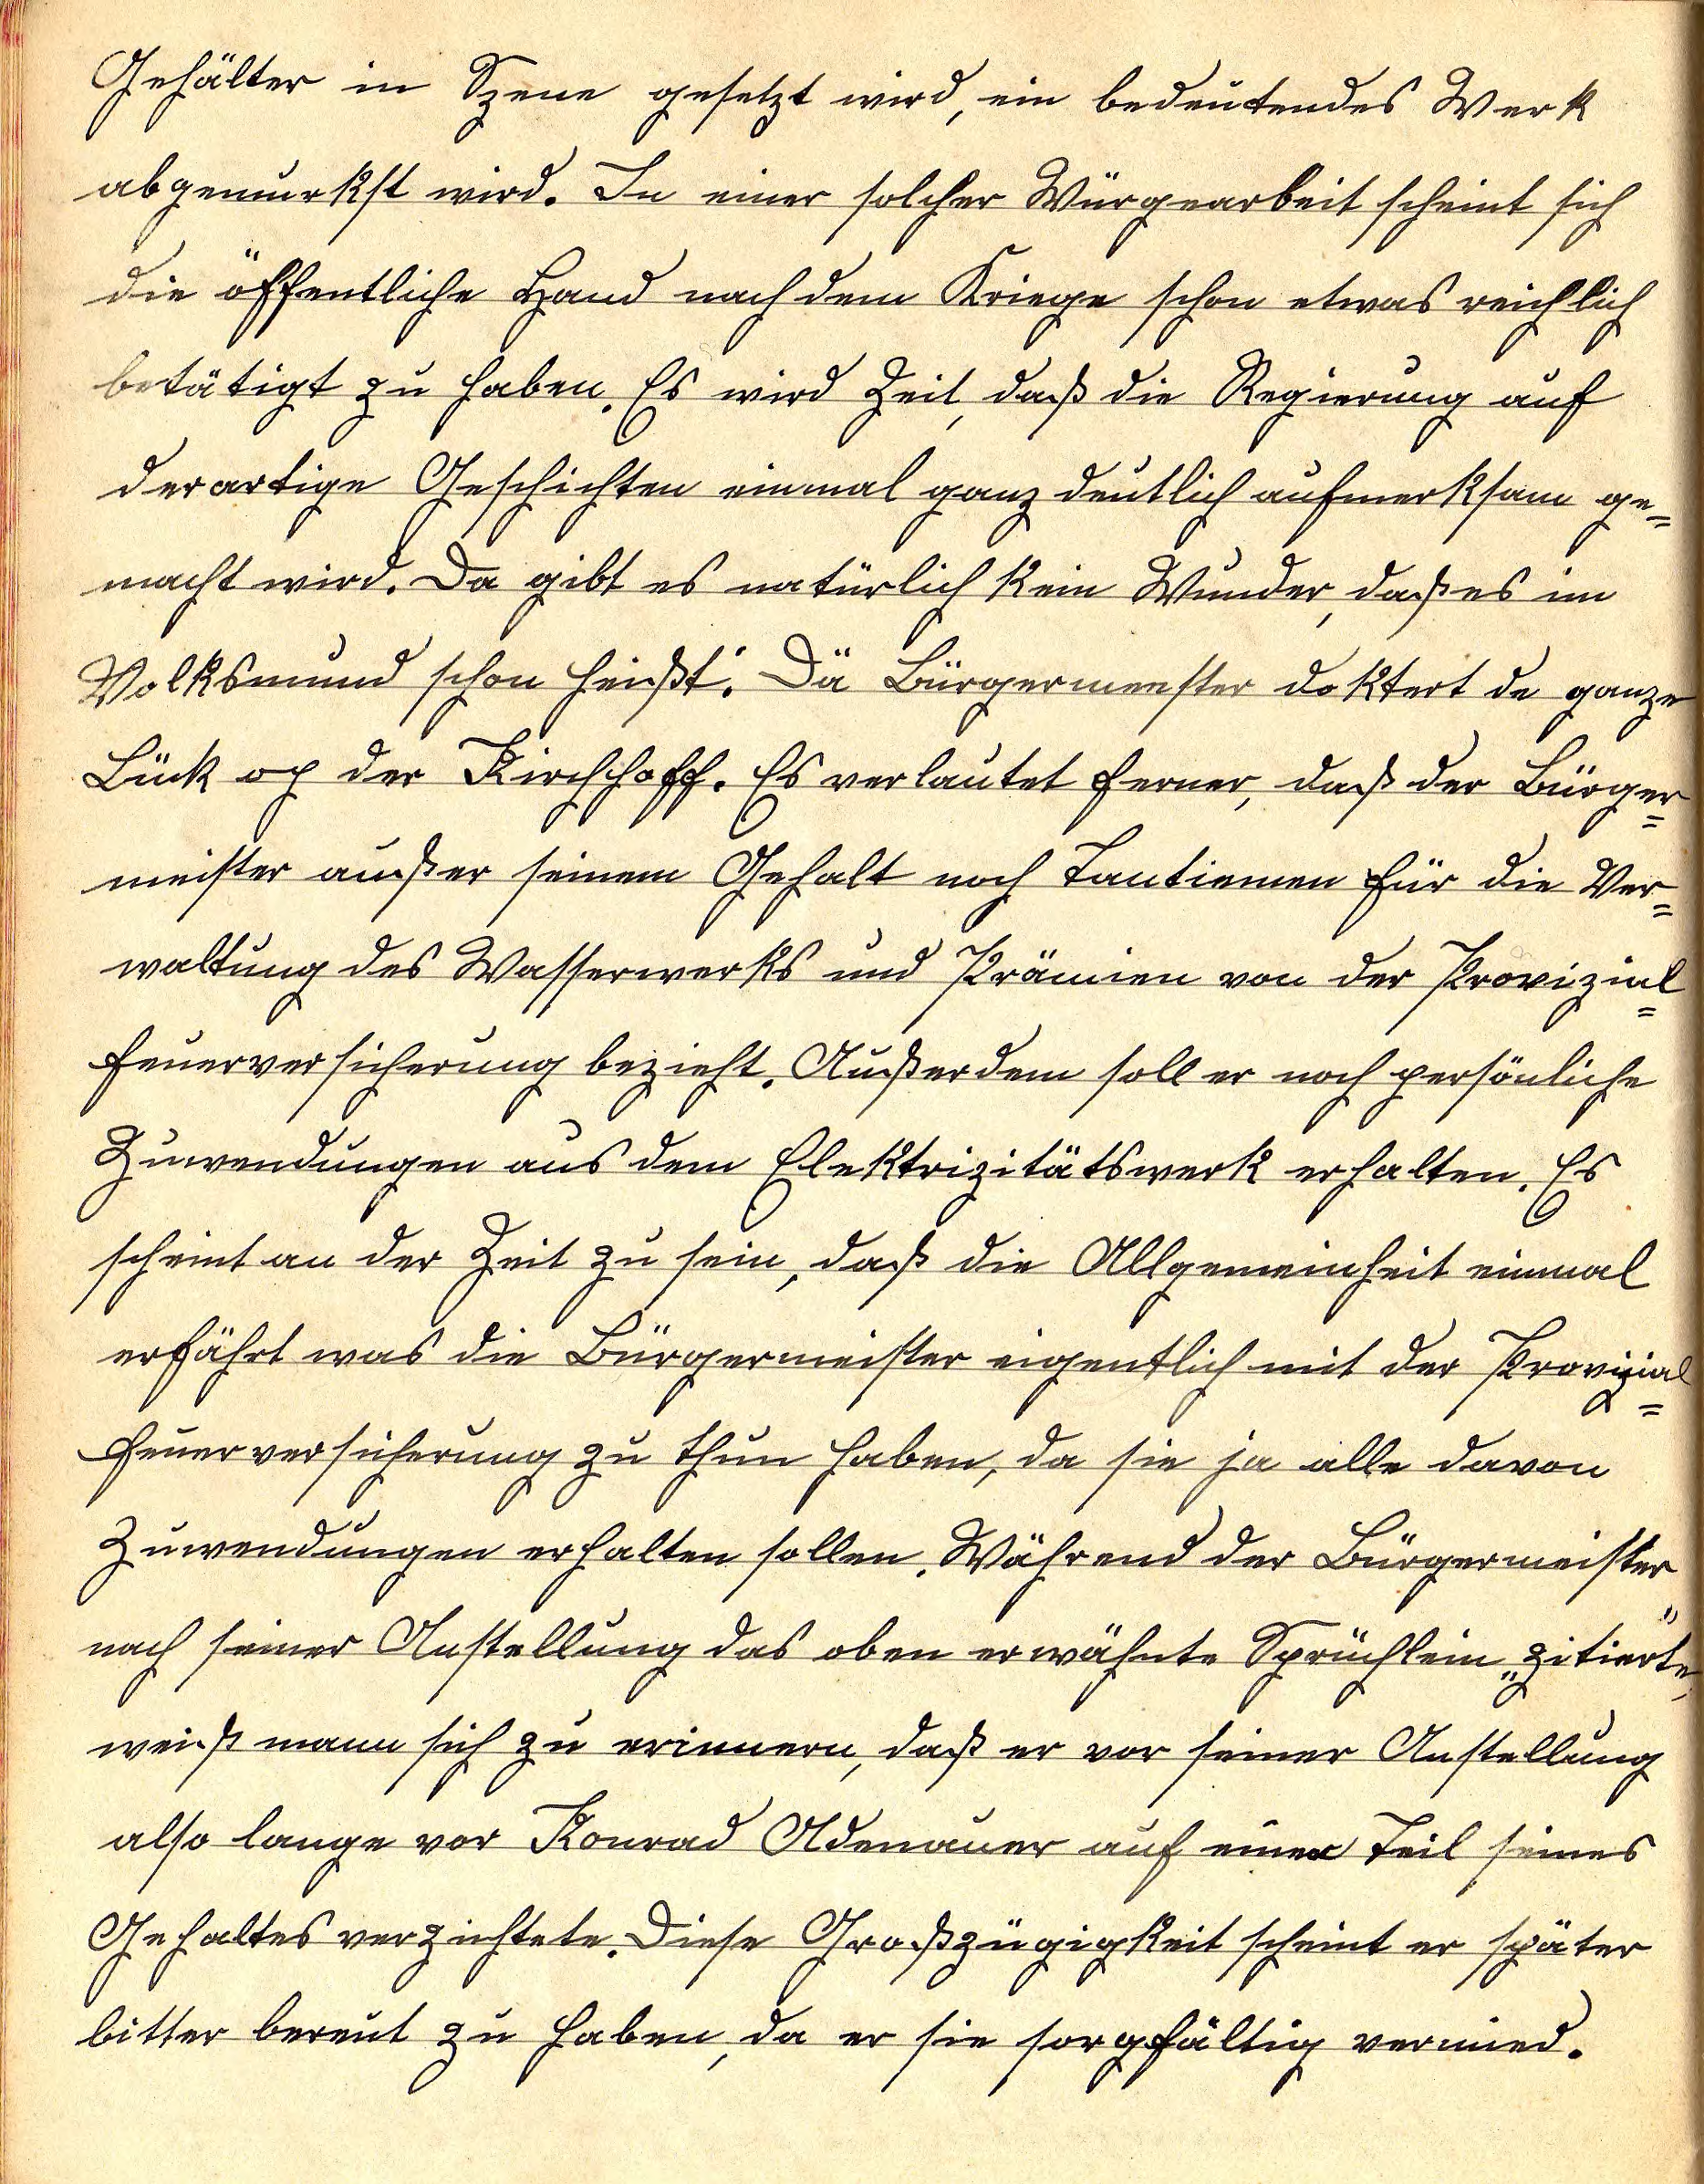 Gehälter in Szene gesetzt wird, ein bedeutendes Werk
abgemurkst wird. In einer solcher Würgearbeit scheint sich
die öffentliche Hand nach dem Kriege schon etwas reichlich
betätigt zu haben. Es wird Zeit, daß die Regierung auf
derartige Geschichten einmal ganz deutlich aufmerksam ge=
macht wird. Da gibt es natürlich kein Wunder, daß es im
Volksmund schon heißt: Dä Bürgermeester doktert de ganze
Lück op der Kirchhoff. Es verlautet ferner, daß der Bürger=
meister außer seinem Gehalt noch Tantiemen für die Ver=
waltung des Wasserwerks und Prämien von der Provizial=
feuerversicherung bezieht. Außerdem soll er noch persönliche
Zuwendungen aus dem Elektrizitätswerk erhalten. Es
scheint an der Zeit zu sein, daß die Allgemeinheit einmal
erfährt was die Bürgermeister eigentlich mit der Provizial=
feuerversicherung zu thun haben, da sie ja alle davon
Zuwendungen erhalten sollen. Während der Bürgermeister
nach seiner Anstellung das oben erwähnte Sprüchlein „zitierte",
weiß mann sich zu erinnern, daß er vor seiner Anstellung
also lange vor Konrad Adenauer auf einen Teil seines
Gehaltes verzichtete. Diese Großzügigkeit scheint er später
bitter bereut zu haben, da er sie sorgfältig vermied.